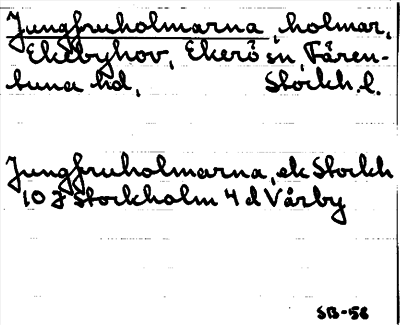 Jungfruholmarna, holmar,
Ekebyhov, Ekerö sn, Fären-
tuna hd, Stockh. l.
Jungfruholmarna, ek Stockh
10 J Stockholm 4 d Vårby
SB-56